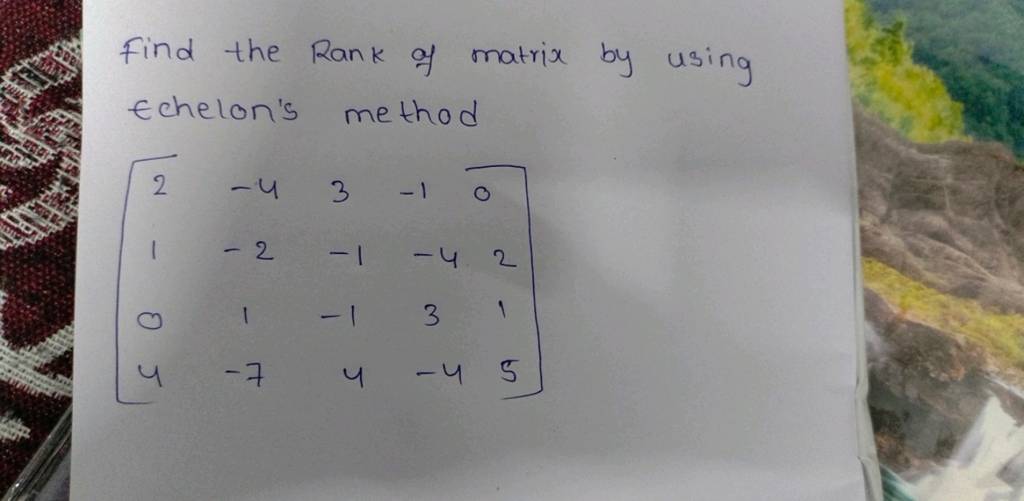 Find the Rank of matrix by using
Echelon's method
2 -4 3 -1 0
1 -2 -1 -4 2
0 1 -1 3 1
4 -7 4 -4 5